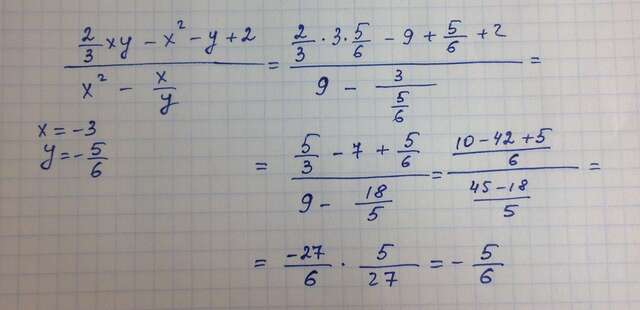 (2/3 xy - x² - y + 2) / (x² - x/y) = (2/3 · 3 · 5/6 - 9 + 5/6 + 2) / (9 - 3/(5/6)) =
x = -3
y = -5/6
= (5/3 - 7 + 5/6) / (9 - 18/5) = ((10 - 42 + 5)/6) / ((45 - 18)/5) =
= -27/6 · 5/27 = -5/6